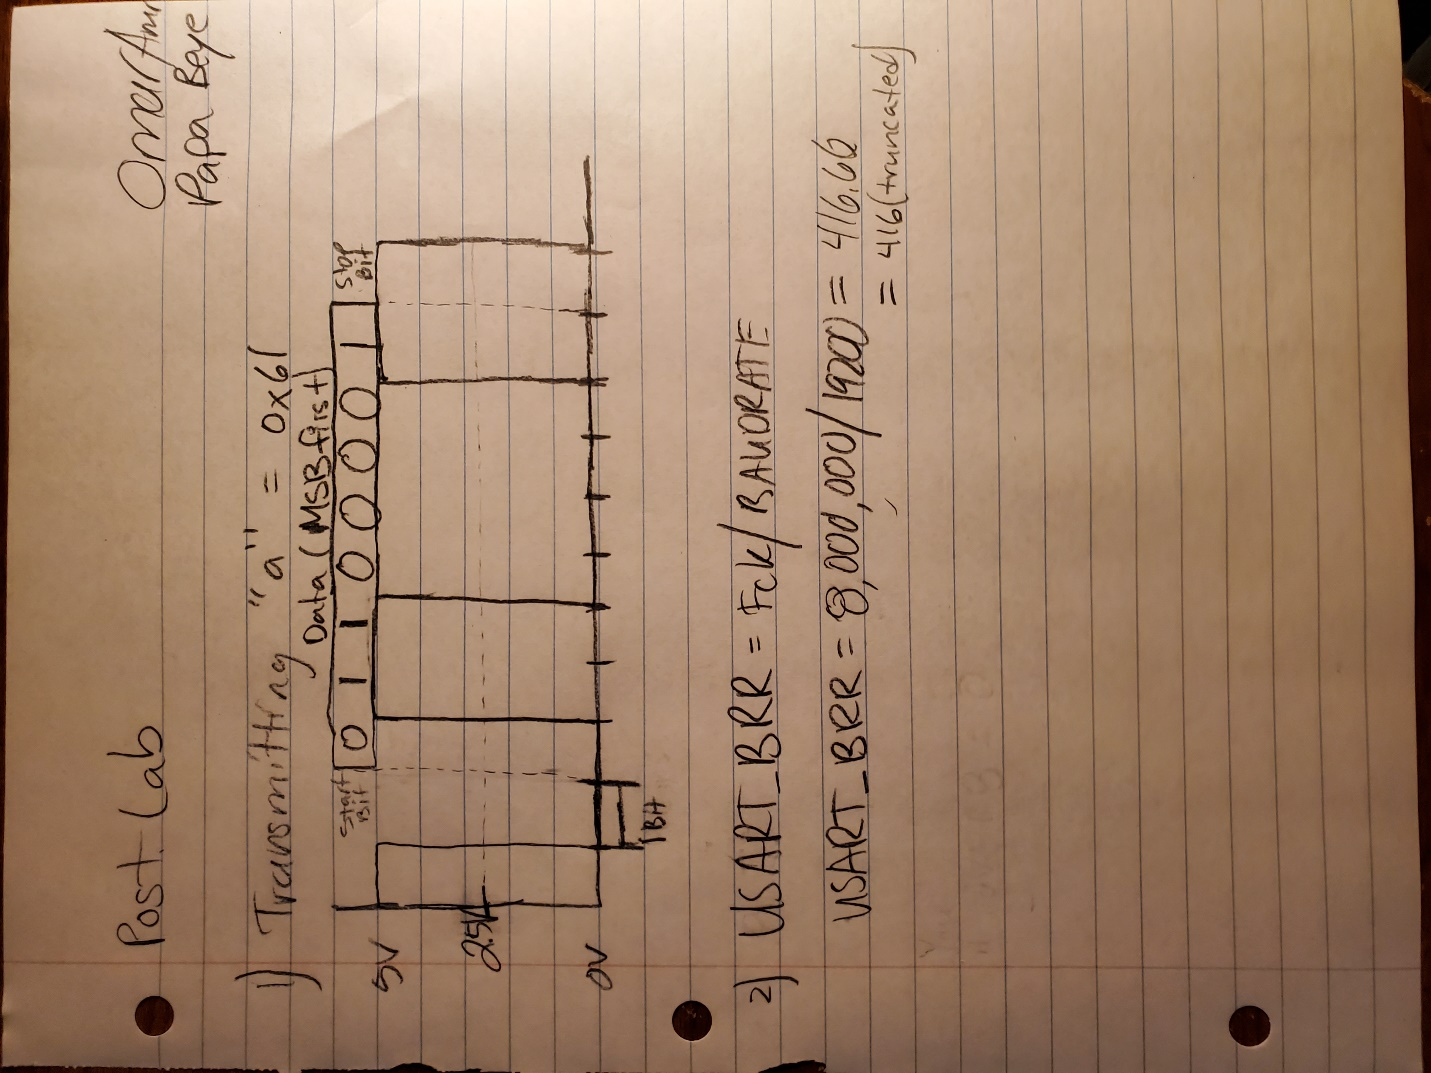 Post Lab
Omar Amir
Papa Beye
1) Transmitting "a" = 0x61
Data (MSB first)
Start Bit 0 1 1 0 0 0 0 1 Stop Bit
5V
2.5V
0V
1 Bit
2) USART_BRR = Fck/BAUDRATE
USART_BRR = 8,000,000/19200 = 416.66
= 416 (truncated)